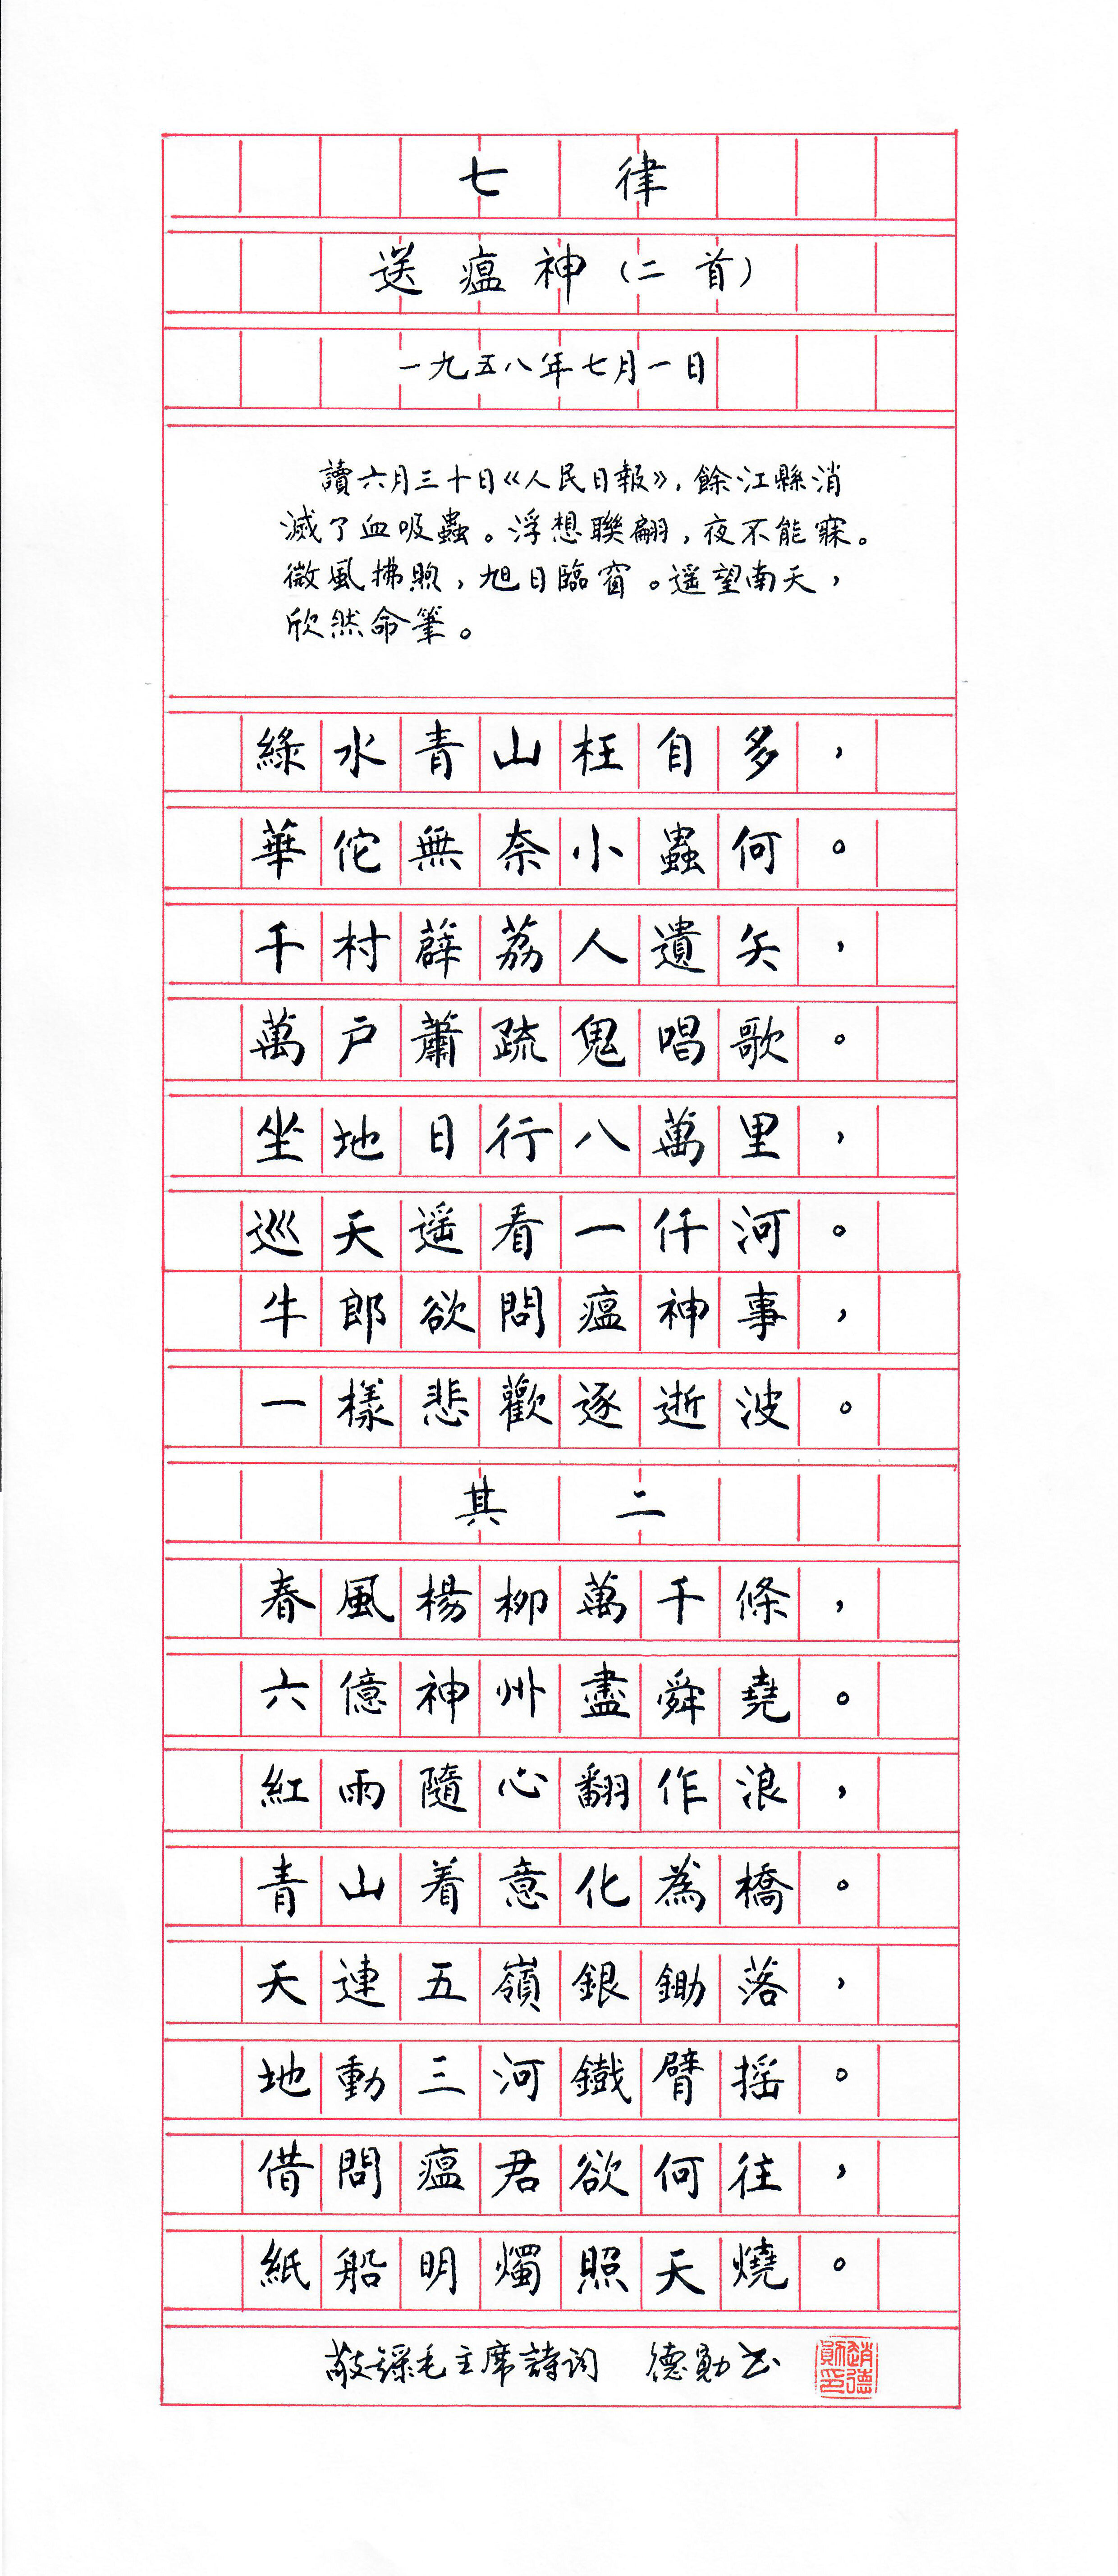 七律
送瘟神（二首）
一九五八年七月一日
讀六月三十日《人民日報》，餘江縣消
滅了血吸蟲。浮想聯翩，夜不能寐。
微風拂煦，旭日臨窗。遥望南天，
欣然命筆。
綠水青山枉自多，
華佗無奈小蟲何。
千村薜荔人遺矢，
萬户蕭疏鬼唱歌。
坐地日行八萬里，
巡天遥看一仟河。
牛郎欲問瘟神事，
一樣悲歡逐逝波。
其二
春風楊柳萬千條，
六億神州盡舜堯。
紅雨隨心翻作浪，
青山着意化為橋。
天連五嶺銀鋤落，
地動三河鐵臂摇。
借問瘟君欲何往，
紙船明燭照天燒。
敬録毛主席詩詞 德勛书
趙德勛印